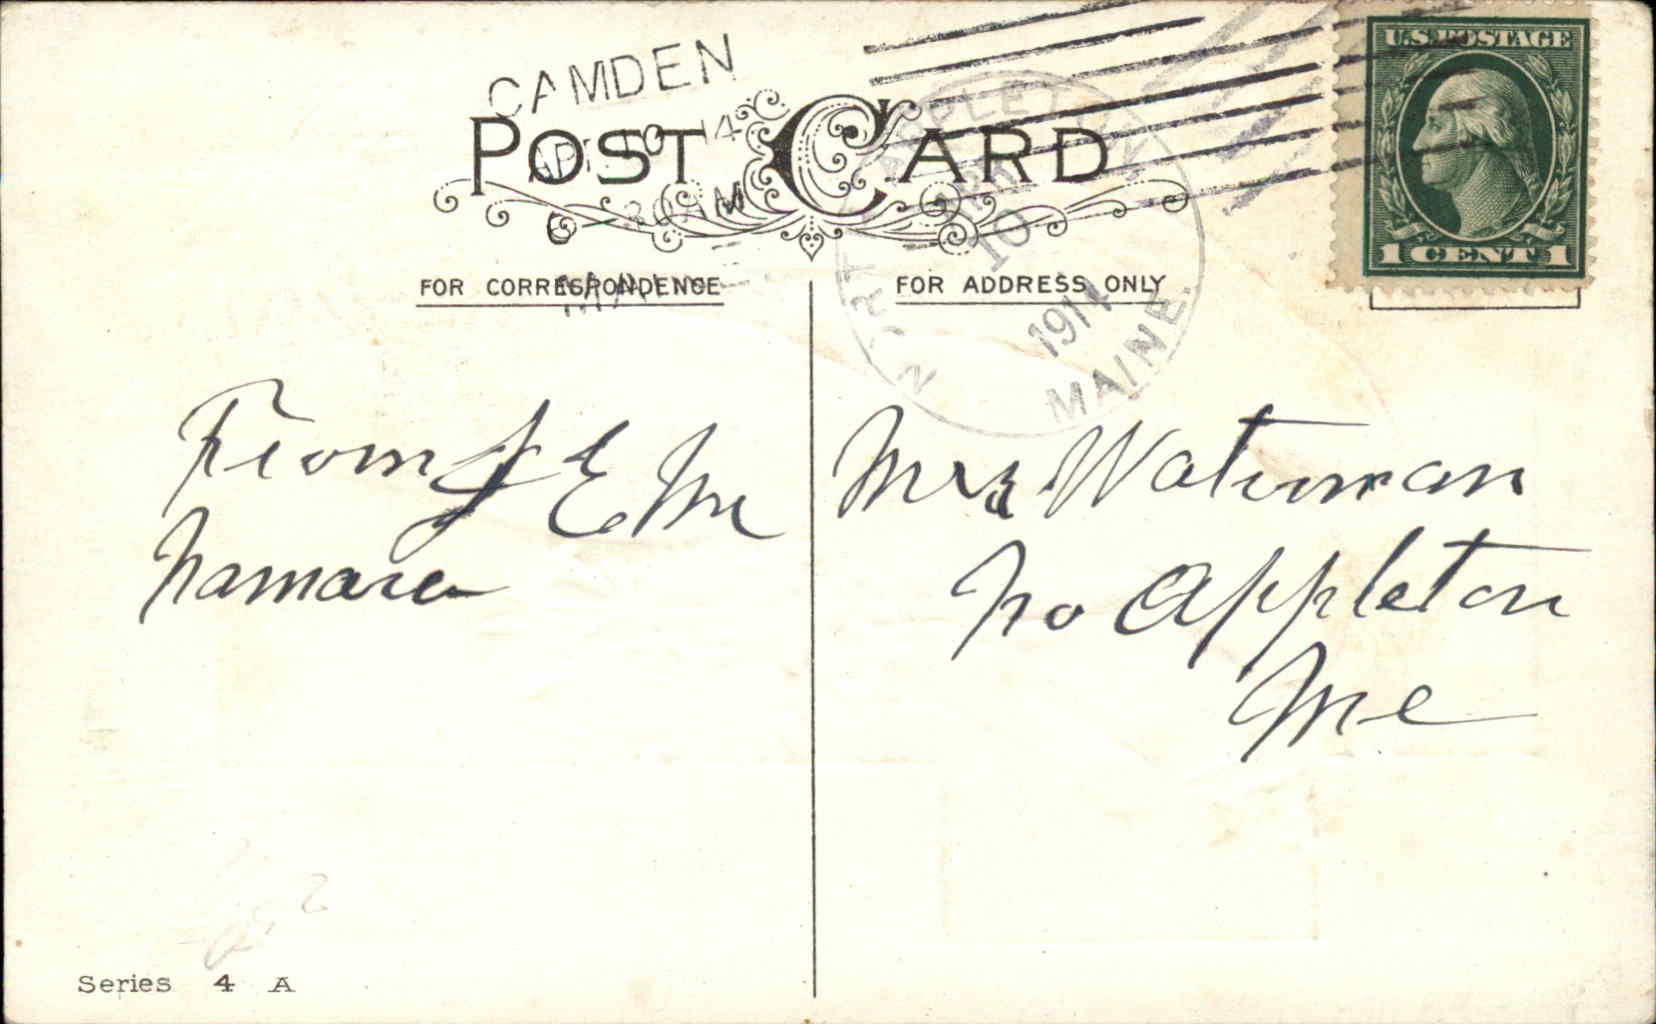 CAMDEN
U.S. POSTAGE
1 CENT 1
POST CARD
APPLETON
APR
10
1914
MAINE.
APR 10 14
-30 AM
MAINE
FOR CORRESPONDENCE
FOR ADDRESS ONLY
From J E Mc
Namara
Mrs Waterman
No Appleton
Me
Series 4 A